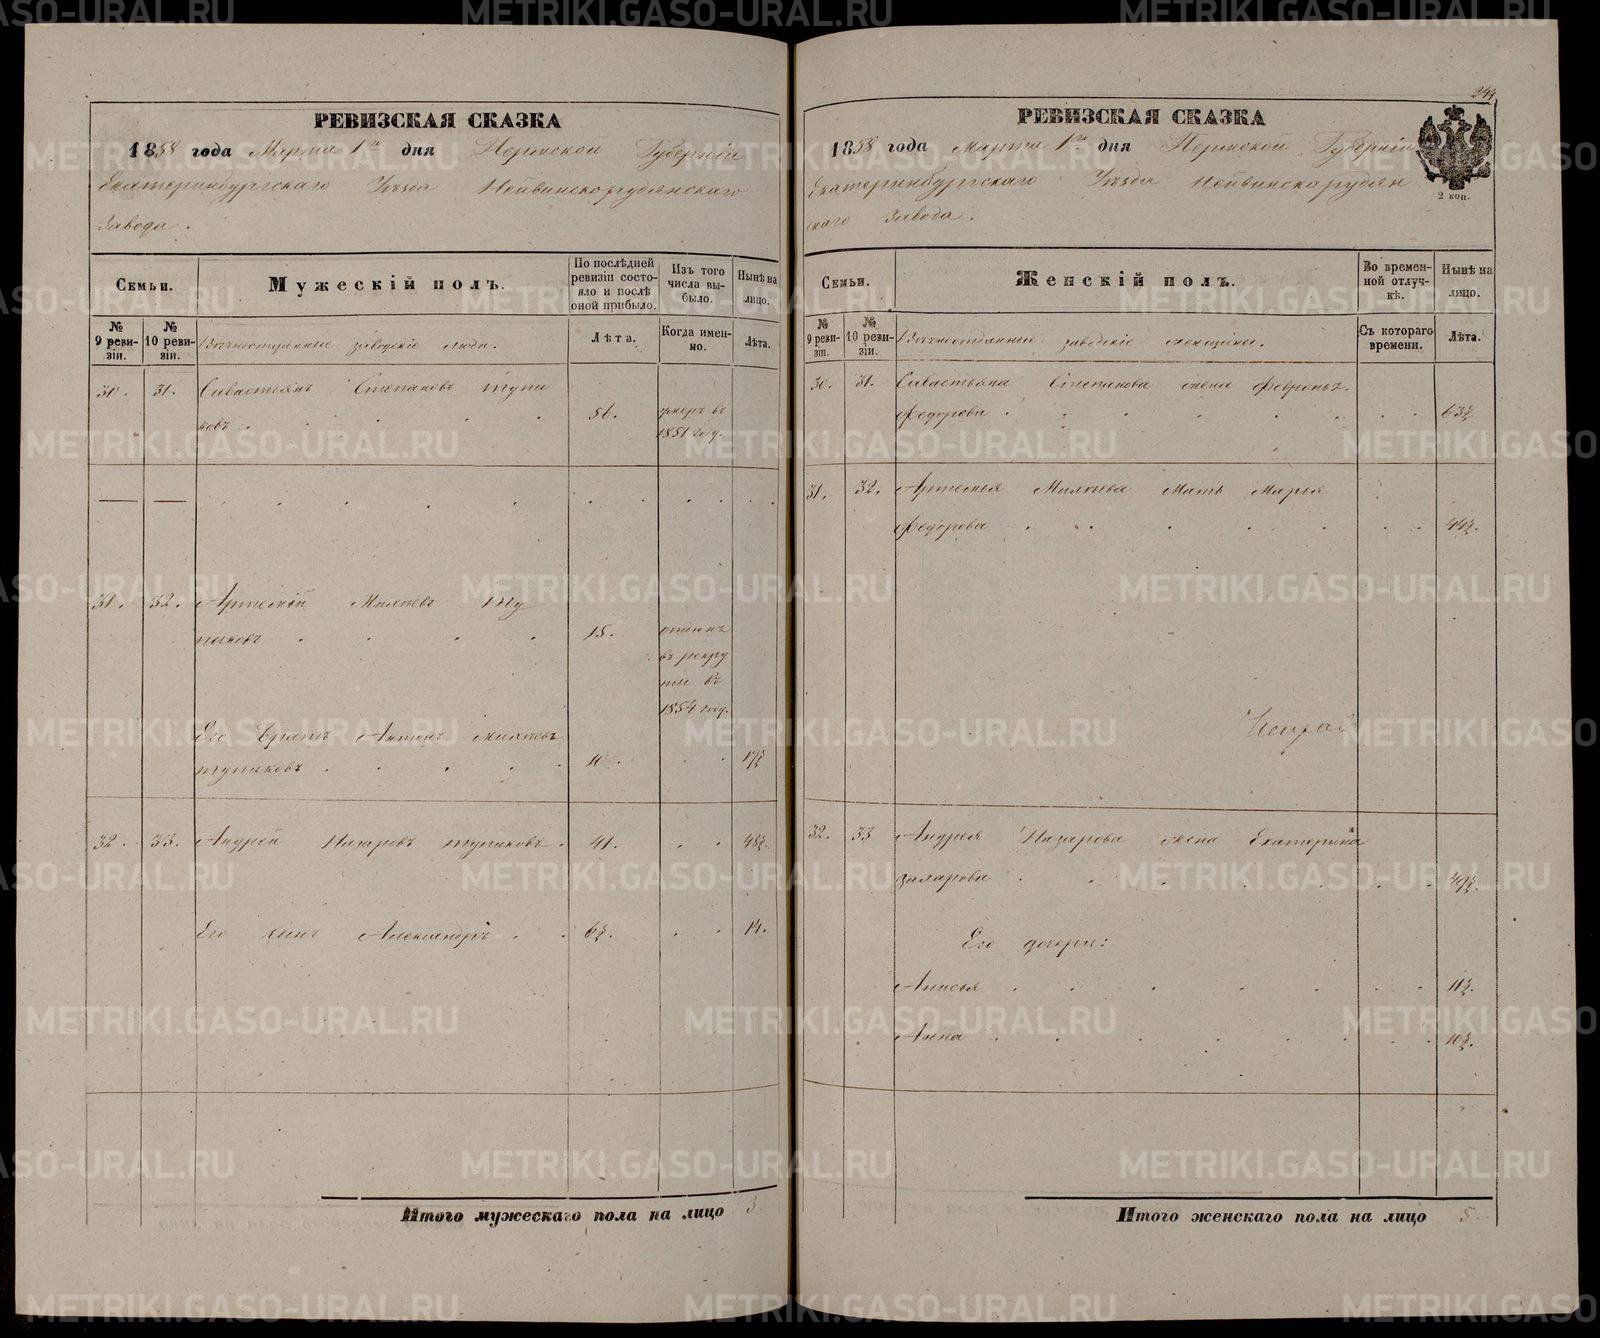 РЕВИЗСКАЯ СКАЗКА
1858 года Марта 1го дня Пермской Губерніи
Екатеринбургскаго Уѣзда Нейвинскорудянскаго
Завода.
Семьи.
Мужескій полъ.
По послѣдней ревизіи состояло и послѣ оной прибыло.
Изъ того числа выбыло.
Нынѣ на лицо.
№ 9 ревизіи.
№ 10 ревизіи.
заводскіе люди.
Лѣта.
Когда именно.
Лѣта.
30. 31. Савастьянъ Степановъ Тупи
ковъ 56. умеръ въ
1851 году.
31. 32. Артемій Михѣевъ Ту
пиковъ 15. отданъ
въ рекру
ты въ
1854 году.
Его братъ Антонъ Михѣевъ
тупиковъ 10. 17½
32. 33. Андрей Назаровъ тупиковъ. 41. 48½.
Его сынъ Александръ 6½. 14.
Итого мужескаго пола на лицо 3.
244
РЕВИЗСКАЯ СКАЗКА
1858 года Марта 1го дня Пермской Губерніи
Екатеринбургскаго Уѣзда Нейвинскорудян
скаго Завода.
2 коп.
Семьи.
Женскій полъ.
Во временной отлучкѣ.
Нынѣ на лицо.
№ 9 ревизіи.
№ 10 ревизіи.
заводскіе женщины.
Съ котораго времени.
Лѣта.
30. 31. Савастьяна Степанова жена Февронья
Федорова 63½
31. 32. Артемья Михѣева Мать Марья
Федорова 44½.
32. 33 Андрея Назарова жена Екатерина
захарова 49½.
Его дочери:
Анисья 11½.
Анна 10½.
Итого женскаго пола на лицо 5.
METRIKI.GASO-URAL.RU